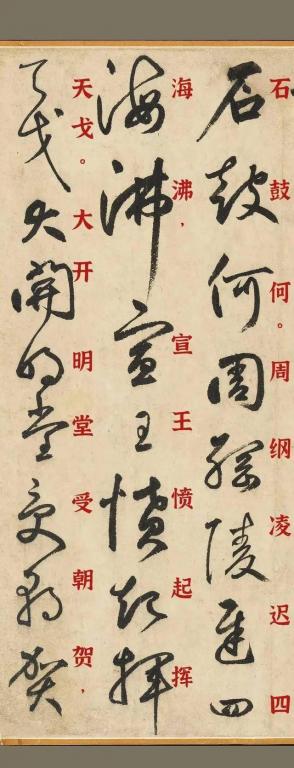 石鼓何。周纲凌迟四
石鼓何周綱陵遲四
海沸，宣王愤起挥
海沸宣王憤起揮
天戈。大开明堂受朝贺，
天戈大開明堂受朝賀